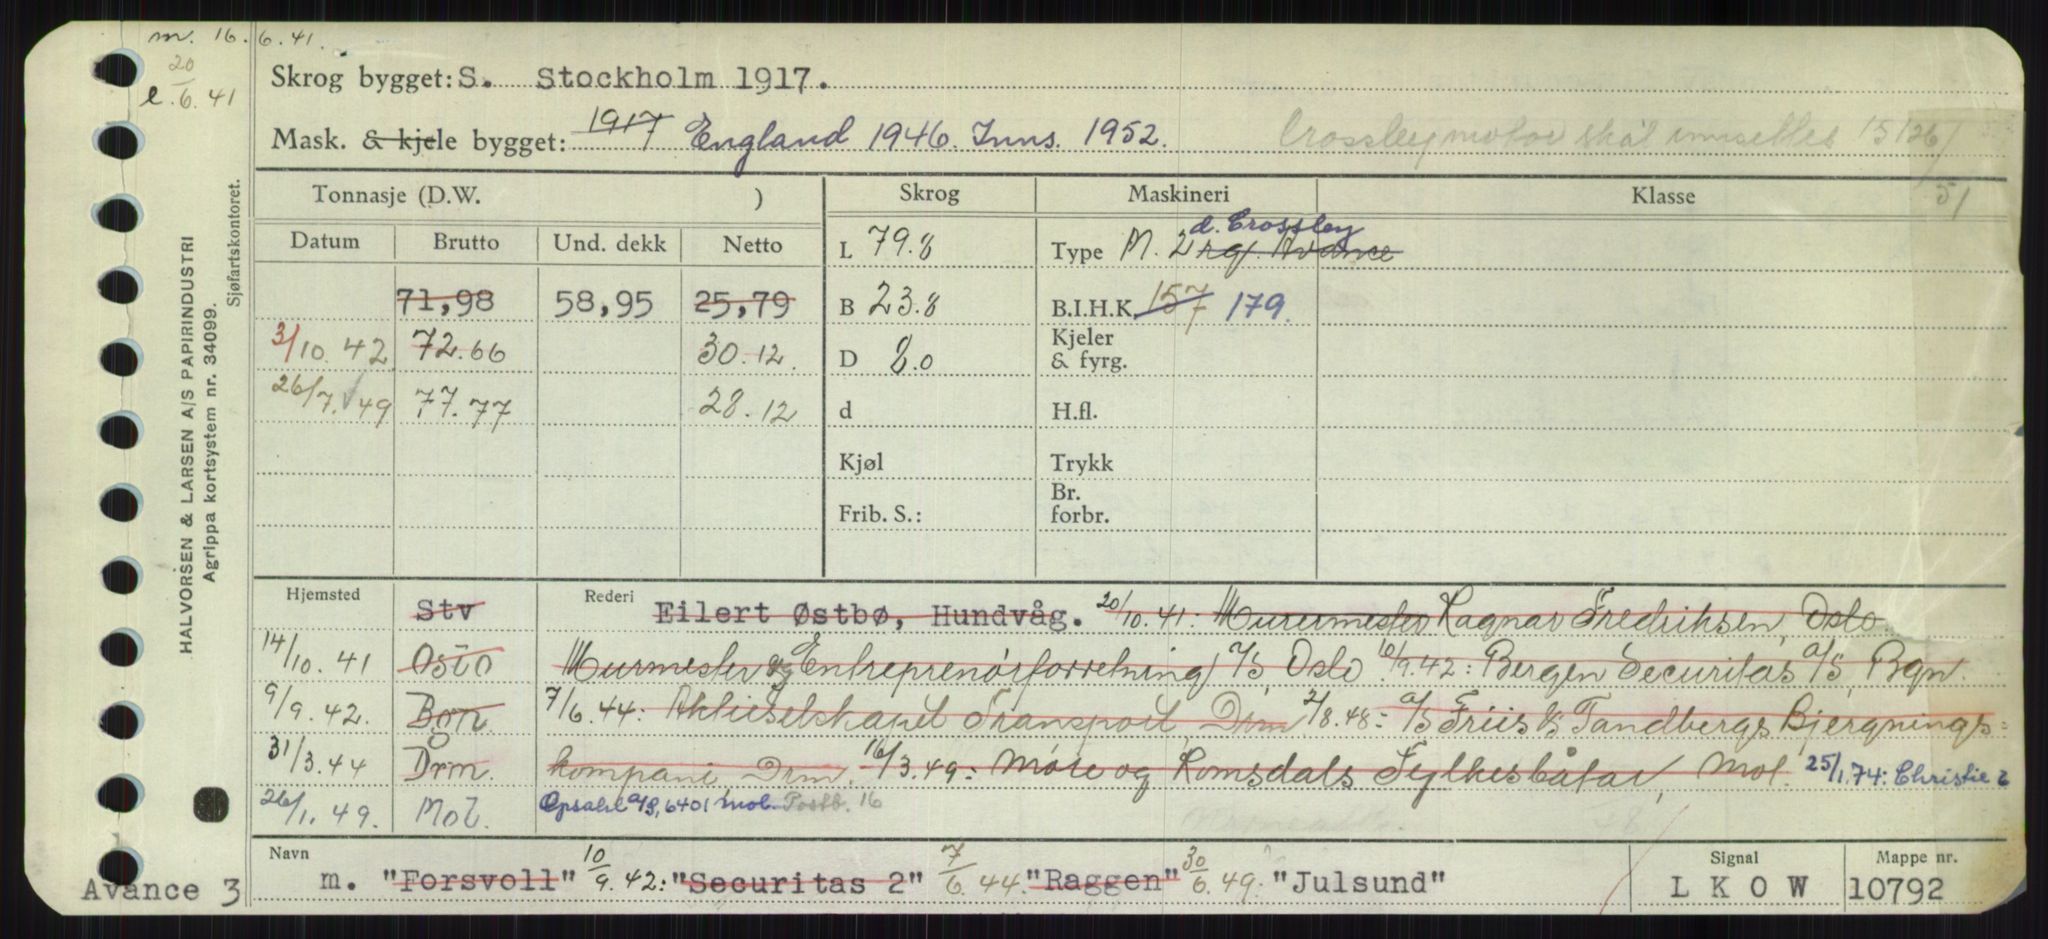 m. 16.6.41.
20/6.41
e.
HALVORSEN & LARSEN A/S PAPIRINDUSTRI
Agrippa kortsystem nr. 34099.
Sjøfartskontoret.
Skrog bygget: S. Stockholm 1917.
Mask. & kjele bygget: 1917 England 1946. Inns. 1952. Crossley motor skal innsettes 15/26/51
Tonnasje (D.W. ) Skrog Maskineri Klasse
Datum Brutto Und. dekk Netto L 79.8 Type M. 2 rg. Avance d. Crossley
71,98 58,95 25,79 B 23.8 B.I.H.K. 157 179.
3/10.42 72.66 30.12. D 8.0 Kjeler & fyrg.
26/7.49 77.77 28.12 d H.fl.
Kjøl Trykk
Frib. S.: Br. forbr.
Hjemsted Stv Rederi Eilert Østbø, Hundvåg. 20/10.41: Murermester Ragnar Fredriksen, Oslo.
14/10.41 Oslo Murmester og Entreprenørforretning A/S, Oslo 10/9.42: Bergen Securitas A/S, Bgn.
9/9.42. Bgn. 7/6.44: Aktieselskapet Transport, Drm 2/8.48: A/S Friis & Tandbergs Bjergnings-
31/3.44 Drm. kompani, Drm. 16/3.49: Møre og Romsdals Fylkesbåtar, Mol. 25/1.74: Christie &
26/1.49. Mol. Opsahl A/S, 6401 Mol. Postb. 16
Navn Signal Mappe nr.
Avance 3 m. "Forsvoll" 10/9.42: "Securitas 2" 7/6.44: "Raggen" 30/6.49: "Julsund" LKOW 10792